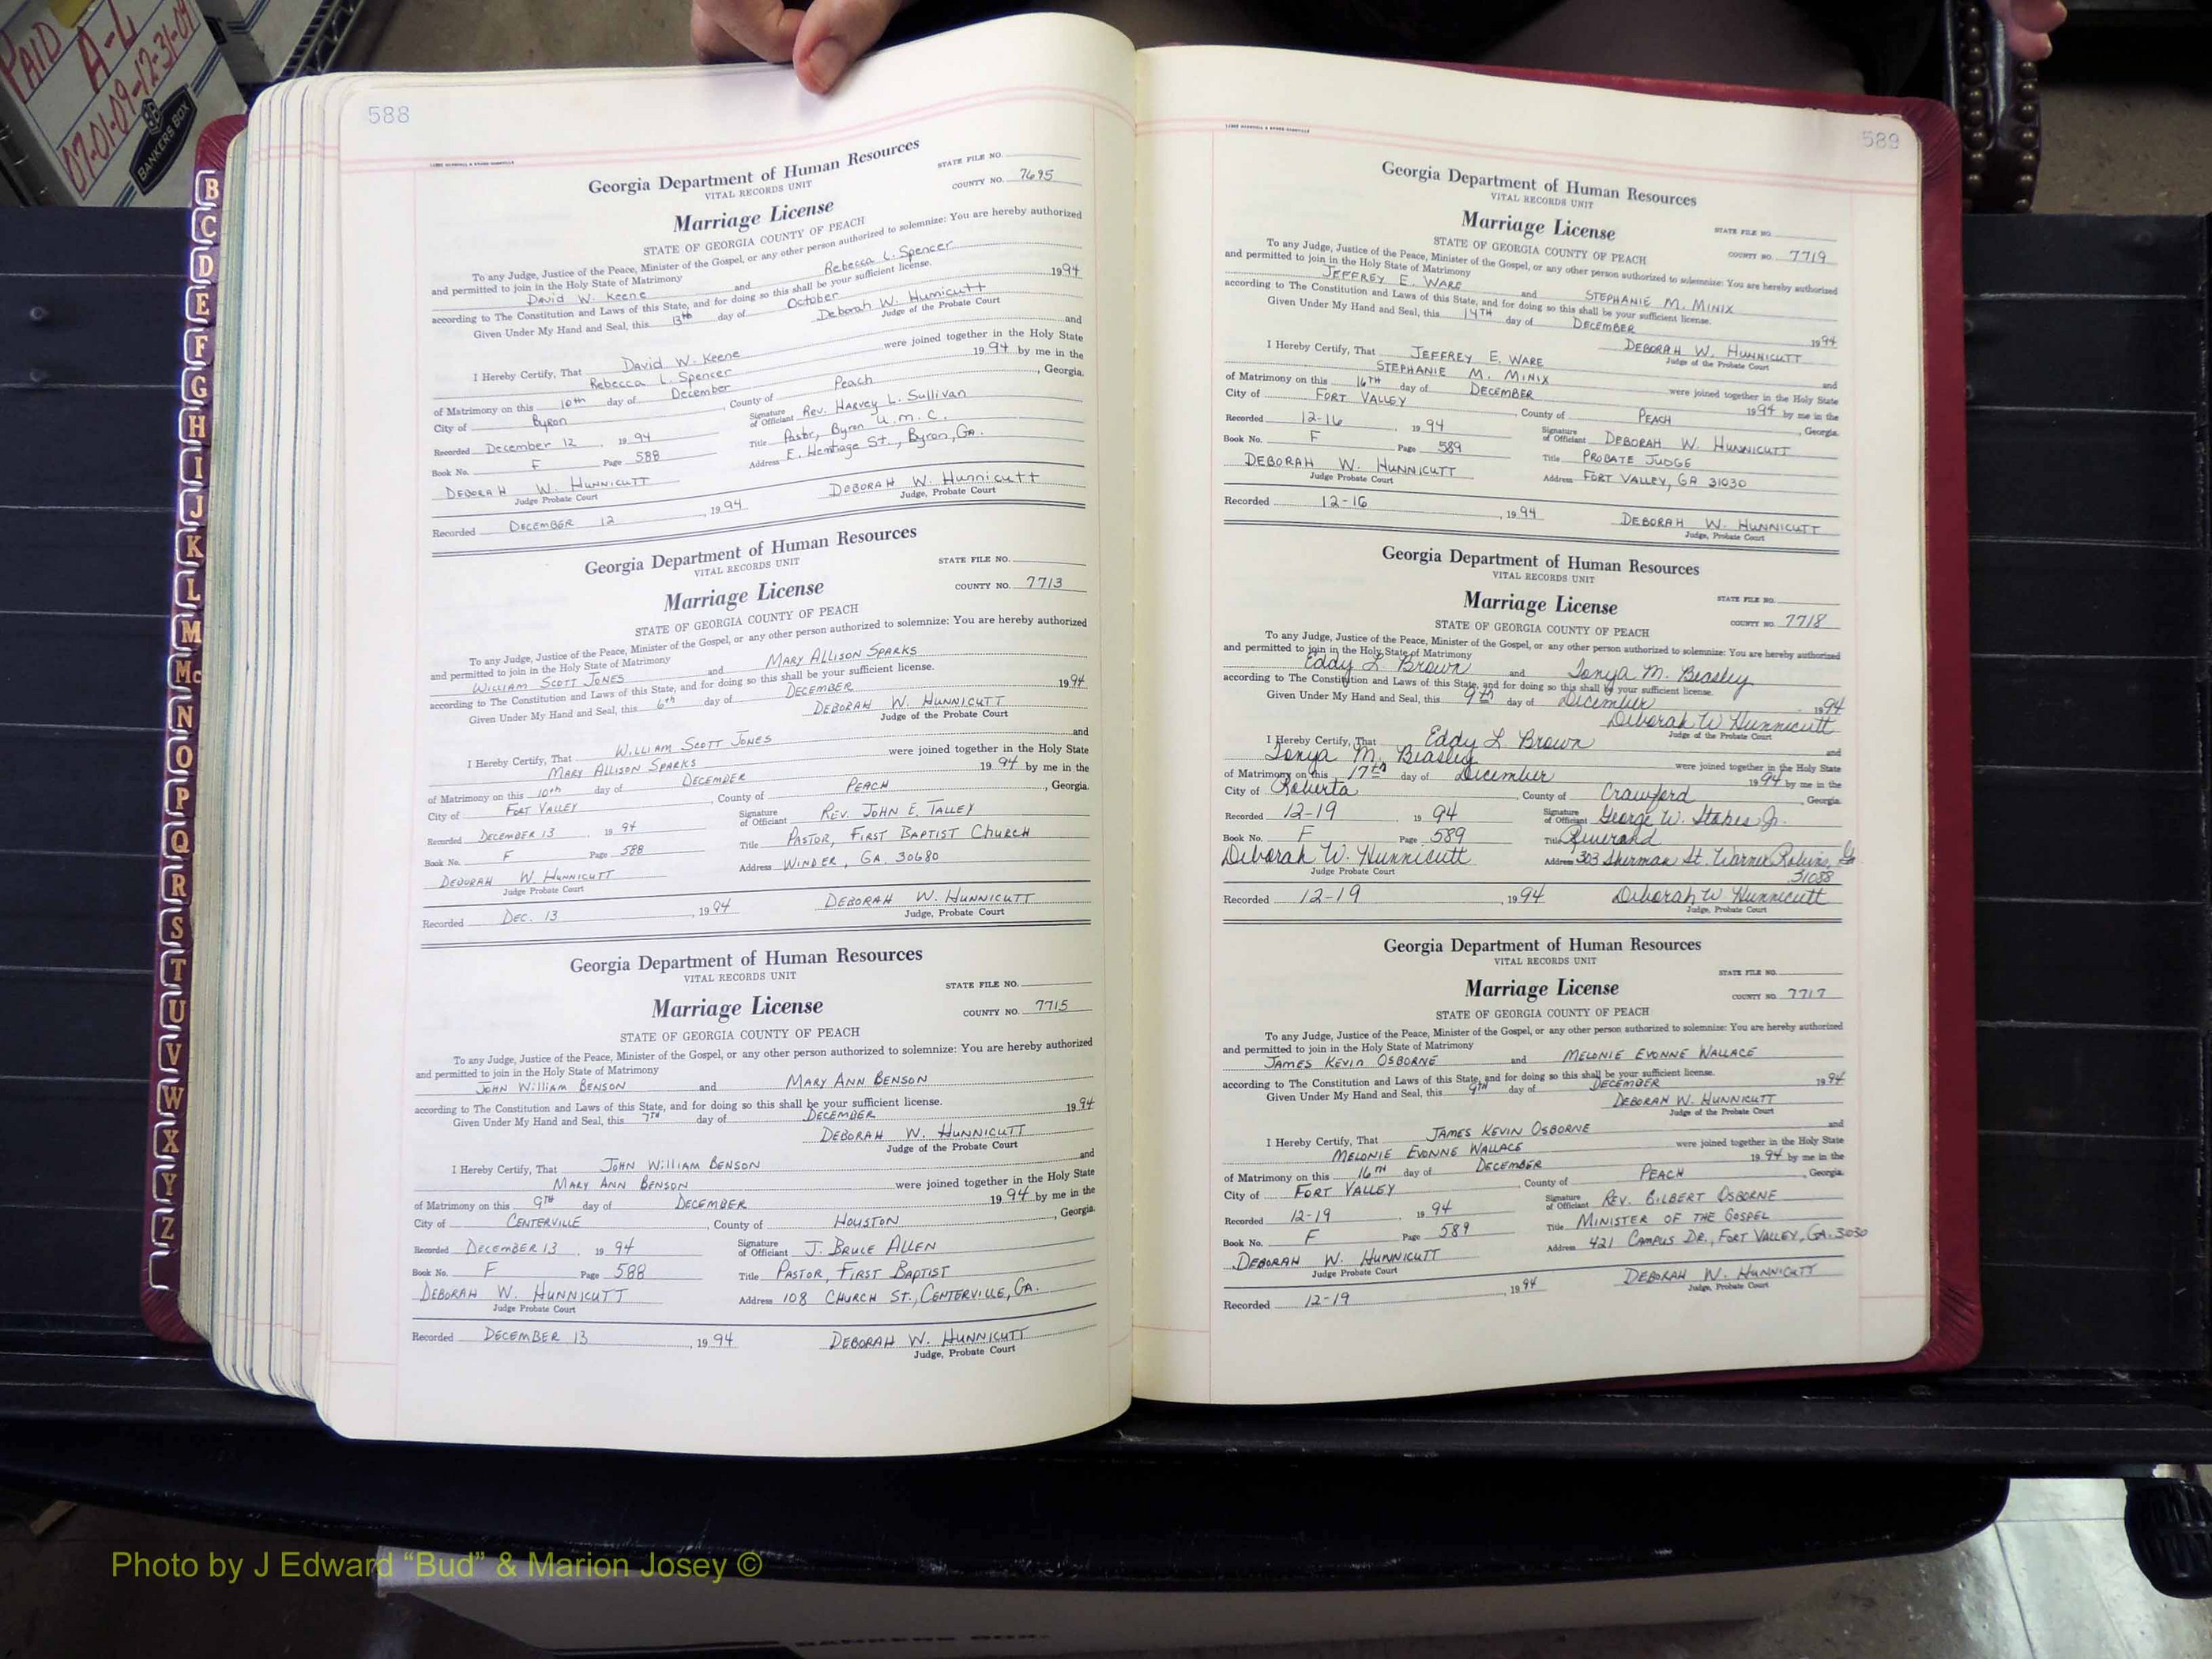 PAID
A-L
07-01-09-12-31-09
BANKERS BOX
B
C
D
E
F
G
H
I
J
K
L
M
Mc
N
O
P
Q
R
S
T
U
V
W
X
Y
Z
588
Georgia Department of Human Resources
VITAL RECORDS UNIT
STATE FILE NO.
COUNTY NO. 7695
Marriage License
STATE OF GEORGIA COUNTY OF PEACH
To any Judge, Justice of the Peace, Minister of the Gospel, or any other person authorized to solemnize: You are hereby authorized
and permitted to join in the Holy State of Matrimony
David W. Keene and Rebecca L. Spencer
according to The Constitution and Laws of this State, and for doing so this shall be your sufficient license.
Given Under My Hand and Seal, this 13th day of October 1994
Deborah W. Hunnicutt
Judge of the Probate Court
I Hereby Certify, That David W. Keene and
Rebecca L. Spencer were joined together in the Holy State
of Matrimony on this 10th day of December 1994 by me in the
City of Byron, County of Peach, Georgia.
Recorded December 12, 1994 Signature of Officiant Rev. Harvey L. Sullivan
Book No. F Page 588 Title Pastor, Byron U.M.C.
DEBORAH W. HUNNICUTT Address E. Hemtiage St., Byron, Ga.
Judge Probate Court
Recorded DECEMBER 12, 1994 DEBORAH W. Hunnicutt
Judge, Probate Court
Georgia Department of Human Resources
VITAL RECORDS UNIT
STATE FILE NO.
COUNTY NO. 7713
Marriage License
STATE OF GEORGIA COUNTY OF PEACH
To any Judge, Justice of the Peace, Minister of the Gospel, or any other person authorized to solemnize: You are hereby authorized
and permitted to join in the Holy State of Matrimony
WILLIAM SCOTT JONES and MARY ALLISON SPARKS
according to The Constitution and Laws of this State, and for doing so this shall be your sufficient license.
Given Under My Hand and Seal, this 6th day of DECEMBER 1994
DEBORAH W. HUNNICUTT
Judge of the Probate Court
I Hereby Certify, That WILLIAM SCOTT JONES and
MARY ALLISON SPARKS were joined together in the Holy State
of Matrimony on this 10th day of DECEMBER 1994 by me in the
City of FORT VALLEY, County of PEACH, Georgia.
Recorded DECEMBER 13 1994 Signature of Officiant REV. JOHN E. TALLEY
Book No. F Page 588 Title PASTOR, FIRST BAPTIST CHURCH
DEBORAH W. HUNNICUTT Address WINDER, GA. 30680
Judge Probate Court
Recorded DEC. 13, 1994 DEBORAH W. HUNNICUTT
Judge, Probate Court
Georgia Department of Human Resources
VITAL RECORDS UNIT
STATE FILE NO.
COUNTY NO. 7715
Marriage License
STATE OF GEORGIA COUNTY OF PEACH
To any Judge, Justice of the Peace, Minister of the Gospel, or any other person authorized to solemnize: You are hereby authorized
and permitted to join in the Holy State of Matrimony
JOHN WILLIAM BENSON and MARY ANN BENSON
according to The Constitution and Laws of this State, and for doing so this shall be your sufficient license.
Given Under My Hand and Seal, this 7TH day of DECEMBER 1994
DEBORAH W. HUNNICUTT
Judge of the Probate Court
I Hereby Certify, That JOHN WILLIAM BENSON and
MARY ANN BENSON were joined together in the Holy State
of Matrimony on this 9TH day of DECEMBER 1994 by me in the
City of CENTERVILLE, County of HOUSTON, Georgia.
Recorded DECEMBER 13, 1994 Signature of Officiant J. BRUCE ALLEN
Book No. F Page 588 Title PASTOR, FIRST BAPTIST
DEBORAH W. HUNNICUTT Address 108 CHURCH ST., CENTERVILLE, GA.
Judge Probate Court
Recorded DECEMBER 13, 1994 DEBORAH W. HUNNICUTT
Judge, Probate Court
589
Georgia Department of Human Resources
VITAL RECORDS UNIT
Marriage License
STATE FILE NO.
STATE OF GEORGIA COUNTY OF PEACH
COUNTY NO. 7719
To any Judge, Justice of the Peace, Minister of the Gospel, or any other person authorized to solemnize: You are hereby authorized
and permitted to join in the Holy State of Matrimony
JEFFREY E. WARE and STEPHANIE M. MINIX
according to The Constitution and Laws of this State, and for doing so this shall be your sufficient license.
Given Under My Hand and Seal, this 14TH day of DECEMBER 1994
DEBORAH W. HUNNICUTT
Judge of the Probate Court
I Hereby Certify, That JEFFREY E. WARE and
STEPHANIE M. MINIX were joined together in the Holy State
of Matrimony on this 16TH day of DECEMBER 1994 by me in the
City of FORT VALLEY, County of PEACH, Georgia.
Recorded 12-16, 1994 Signature of Officiant DEBORAH W. HUNNICUTT
Book No. F Page 589 Title PROBATE JUDGE
DEBORAH W. HUNNICUTT Address FORT VALLEY, GA 31030
Judge Probate Court
Recorded 12-16, 1994 DEBORAH W. HUNNICUTT
Judge, Probate Court
Georgia Department of Human Resources
VITAL RECORDS UNIT
Marriage License
STATE FILE NO.
STATE OF GEORGIA COUNTY OF PEACH
COUNTY NO. 7718
To any Judge, Justice of the Peace, Minister of the Gospel, or any other person authorized to solemnize: You are hereby authorized
and permitted to join in the Holy State of Matrimony
Eddy L Brown and Tonya M. Beasley
according to The Constitution and Laws of this State, and for doing so this shall be your sufficient license.
Given Under My Hand and Seal, this 9th day of December 1994
Deborah W Hunnicutt
Judge of the Probate Court
I Hereby Certify, That Eddy L Brown and
Tonya M. Beasley were joined together in the Holy State
of Matrimony on this 17th day of December 1994 by me in the
City of Roberta, County of Crawford, Georgia
Recorded 12-19 1994 Signature of Officiant George W. Stokes Jr.
Book No. F Page 589 Title Reverand
Deborah W. Hunnicutt Address 303 Sherman St. Warner Robins, Ga
31088
Judge Probate Court
Recorded 12-19, 1994 Deborah W Hunnicutt
Judge, Probate Court
Georgia Department of Human Resources
VITAL RECORDS UNIT
STATE FILE NO.
Marriage License
COUNTY NO. 7717
STATE OF GEORGIA COUNTY OF PEACH
To any Judge, Justice of the Peace, Minister of the Gospel, or any other person authorized to solemnize: You are hereby authorized
and permitted to join in the Holy State of Matrimony
JAMES KEVIN OSBORNE and MELONIE EVONNE WALLACE
according to The Constitution and Laws of this State, and for doing so this shall be your sufficient license.
Given Under My Hand and Seal, this 9TH day of DECEMBER 1994
DEBORAH W. HUNNICUTT
Judge of the Probate Court
I Hereby Certify, That JAMES KEVIN OSBORNE and
MELONIE EVONNE WALLACE were joined together in the Holy State
of Matrimony on this 16TH day of DECEMBER 1994 by me in the
City of FORT VALLEY, County of PEACH, Georgia.
Recorded 12-19, 1994 Signature of Officiant REV. GILBERT OSBORNE
Book No. F Page 589 Title MINISTER OF THE GOSPEL
DEBORAH W. HUNNICUTT Address 421 CAMPUS DR., FORT VALLEY, GA. 3030
Judge Probate Court
Recorded 12-19, 1994 DEBORAH W. HUNNICUTT
Judge, Probate Court
Photo by J Edward “Bud” & Marion Josey ©